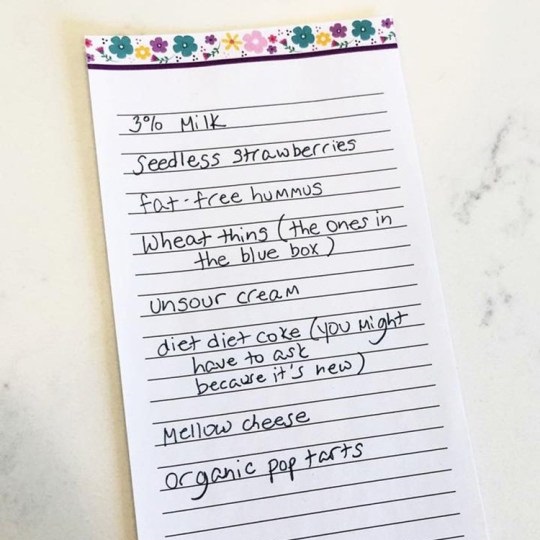 3% Milk
Seedless strawberries
fat-free hummus
Wheat thing (the ones in
the blue box)
Unsour cream
diet diet coke (you might
have to ask
because it's new)
Mellow cheese
organic pop tarts